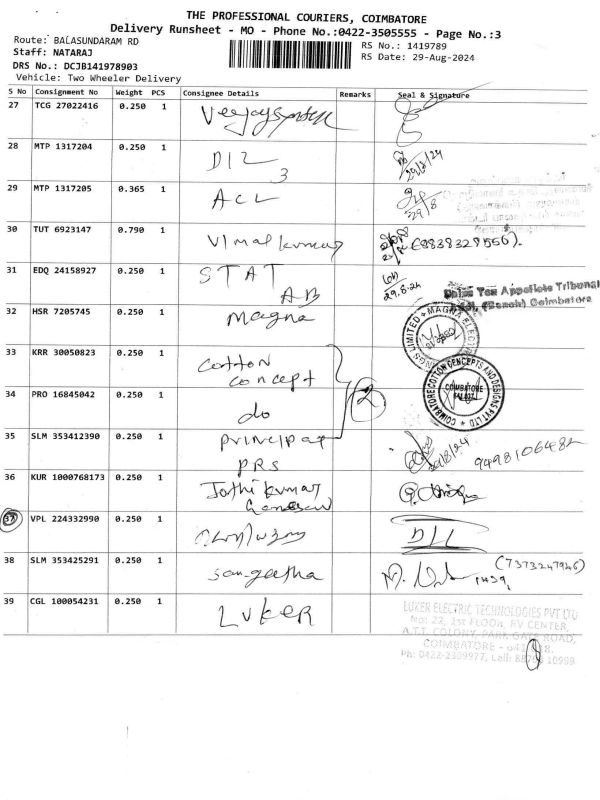 THE PROFESSIONAL COURIERS, COIMBATORE
Delivery Runsheet - MO - Phone No.:0422-3505555 - Page No.:3
Route: BALASUNDARAM RD
RS No.: 1419789
Staff: NATARAJ
RS Date: 29-Aug-2024
DRS No.: DCJB141978903
Vehicle: Two Wheeler Delivery
S No Consignment No Weight PCS Consignee Details Remarks Seal & Signature
27 TCG 27022416 0.250 1
28 MTP 1317204 0.250 1 DIL 29/8/24
3
29 MTP 1317205 0.365 1 ACL 29/8
30 TUT 6923147 0.790 1 Vimalkumar
31 EDQ 24158927 0.250 1 STAT 29.8.24
AB
Sales Tax Appellate Tribunal
(Bench) Coimbatore
32 HSR 7205745 0.250 1 Magna
33 KRR 30050823 0.250 1 Cotton
concept
COIMBATORE COTTON CONCEPTS AND DESIGNS PVT LTD
COIMBATORE
34 PRO 16845042 0.250 1 do 2
35 SLM 353412390 0.250 1 Principal
PRS
36 KUR 1000768173 0.250 1 Jothikumar
Ganesan
37 VPL 224332990 0.250 1 DLL
38 SLM 353425291 0.250 1 Sangeetha (7373247946)
39 CGL 100054231 0.250 1 LUKER
LUKER ELECTRIC TECHNOLOGIES PVT LTD
No: 22, 1st FLOOR, RV CENTER,
A.T.T. COLONY, PARK GATE ROAD,
COIMBATORE
Ph: 0422-2309977, Cell: